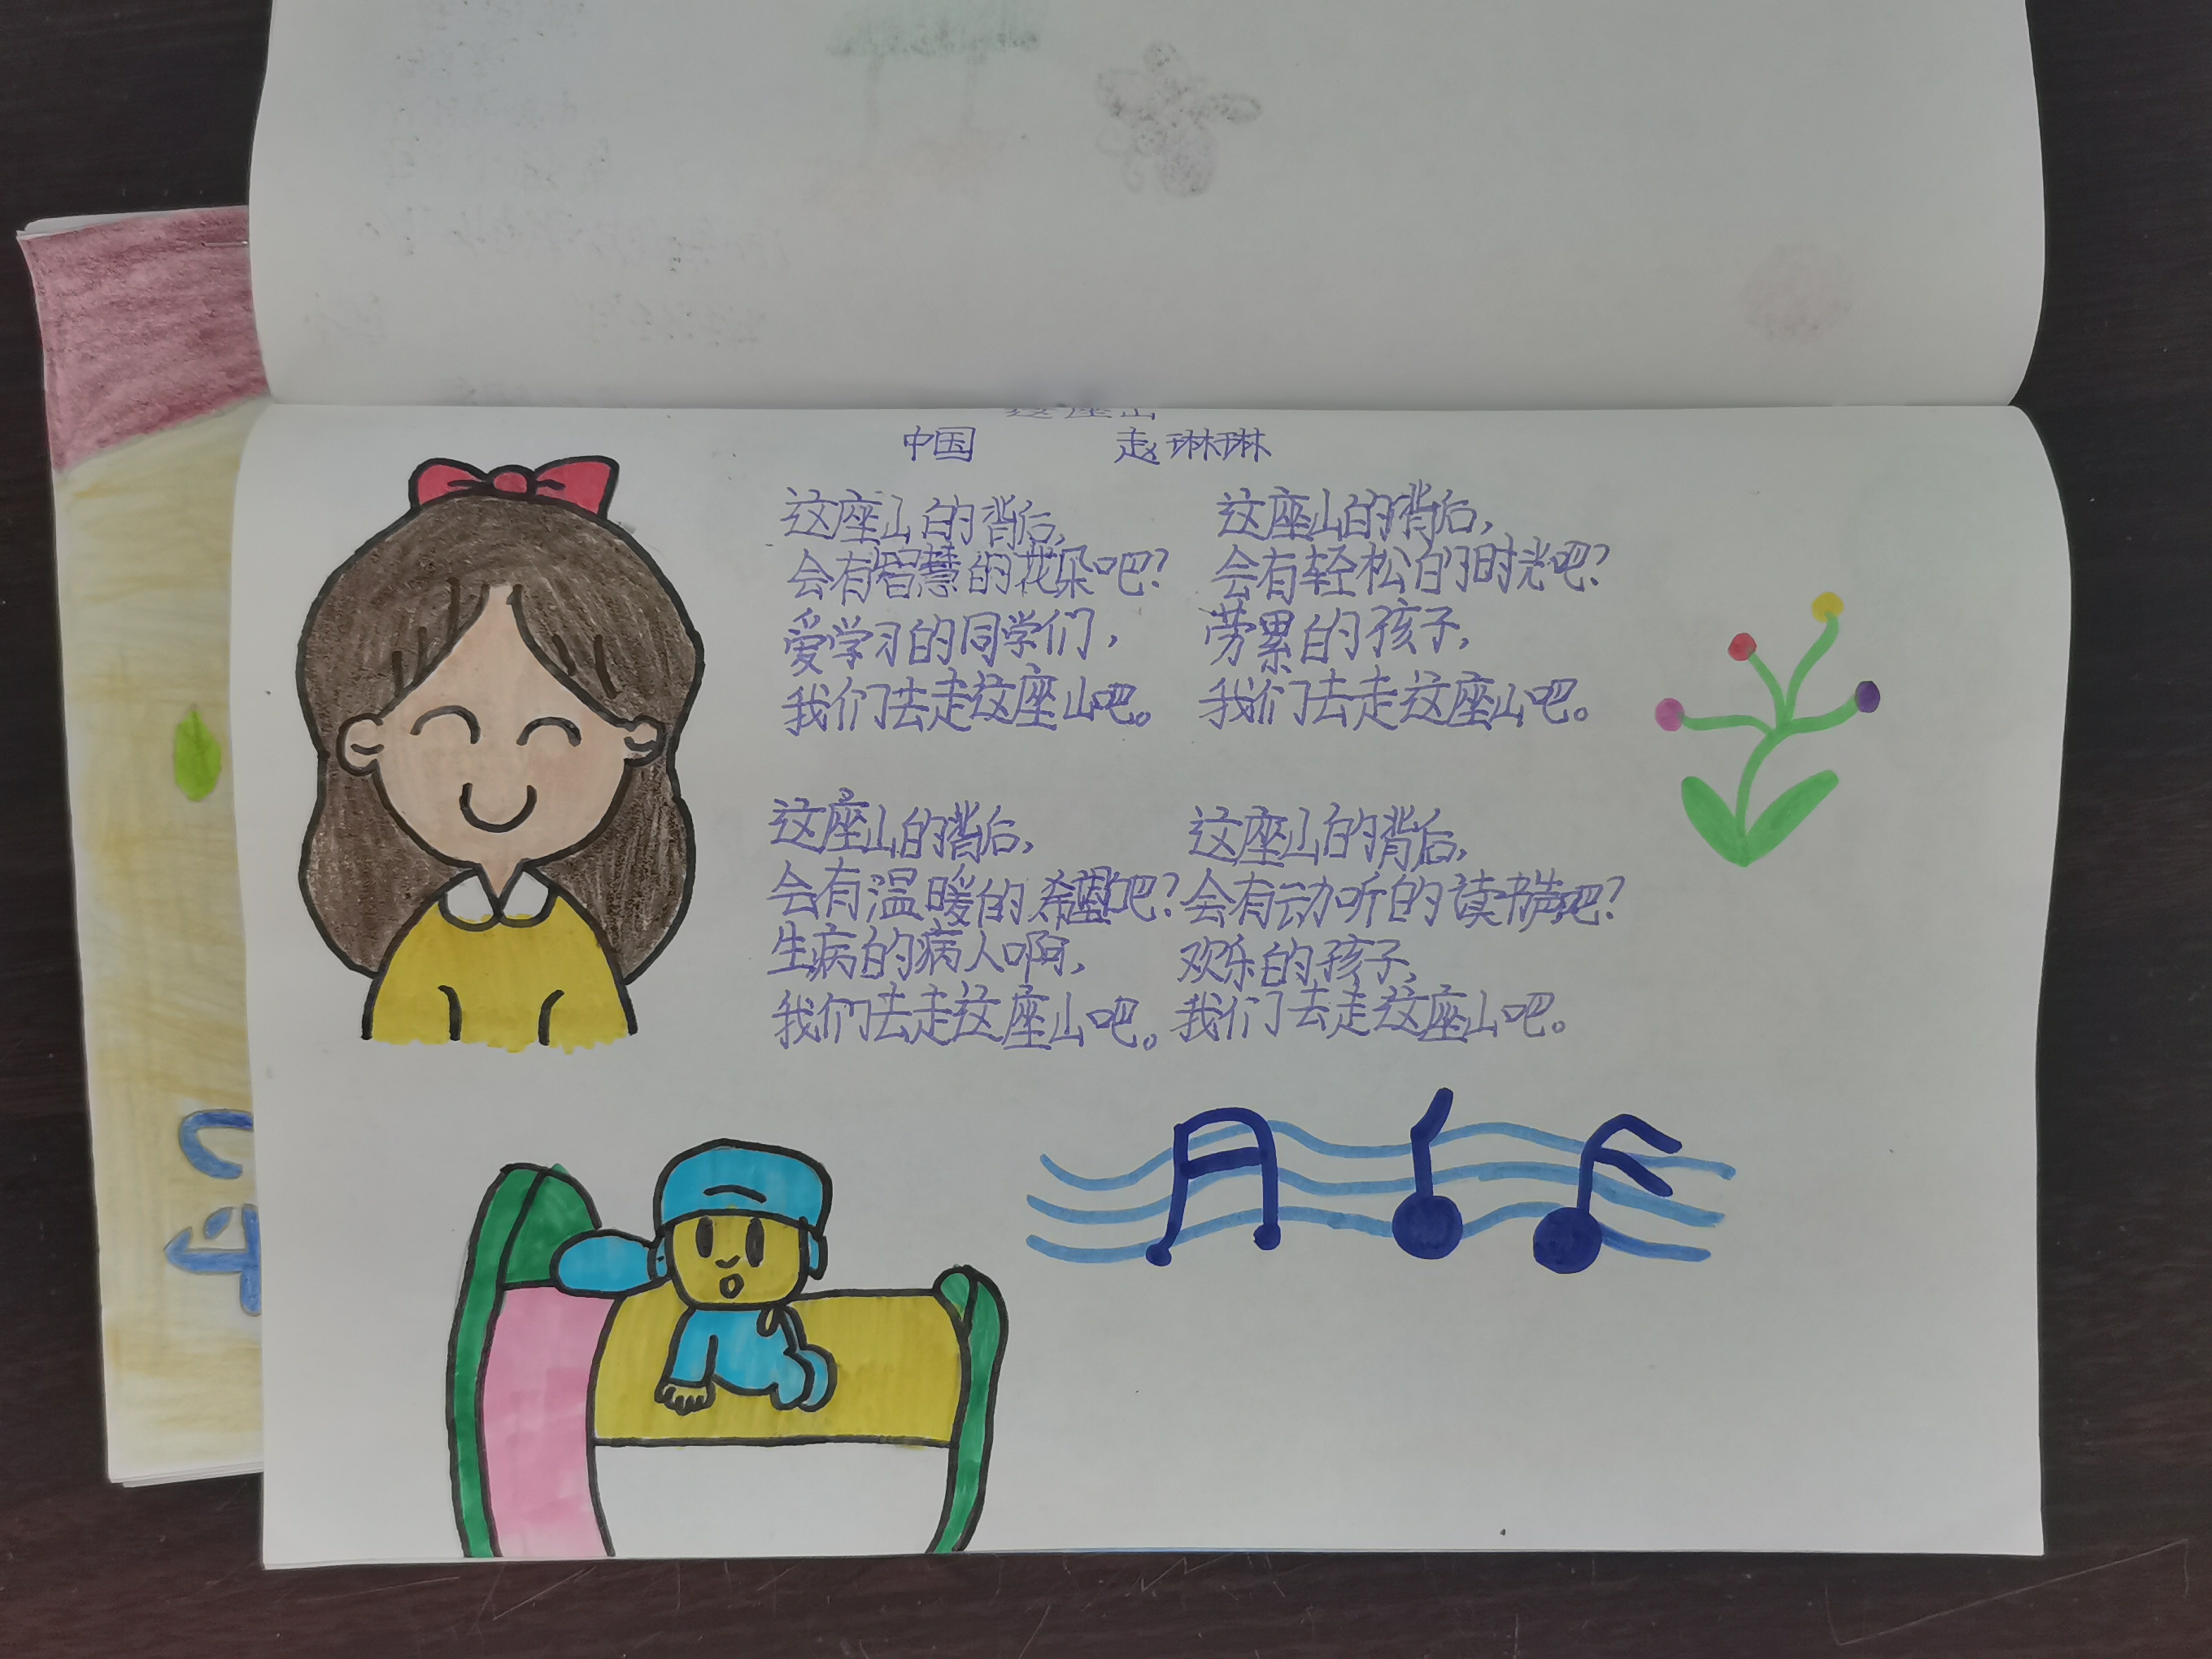 这座山
中国 赵琳琳
这座山的背后,
会有智慧的花朵吧?
爱学习的同学们,
我们去走这座山吧。
这座山的背后,
会有轻松的时光吧?
劳累的孩子,
我们去走这座山吧。
这座山的背后,
会有温暖的希望吧?
生病的病人啊,
我们去走这座山吧。
这座山的背后,
会有动听的读书声吧?
欢乐的孩子,
我们去走这座山吧。